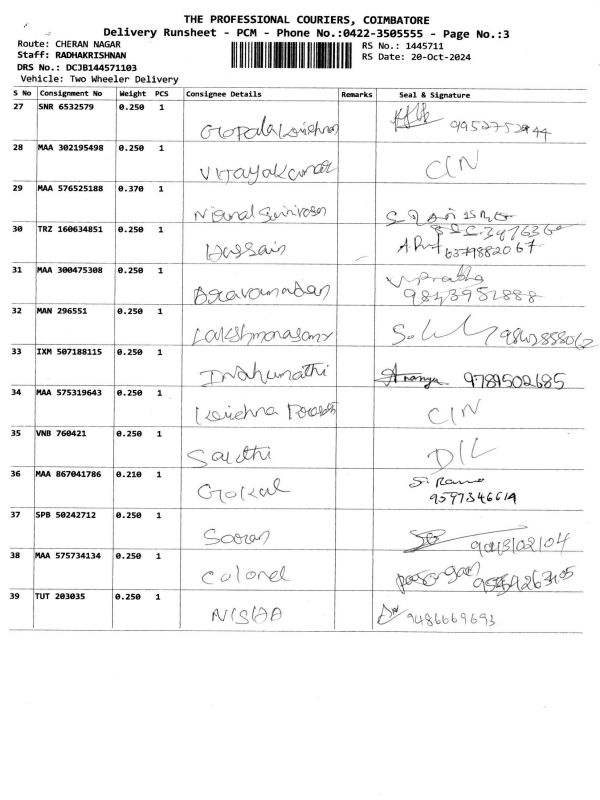 THE PROFESSIONAL COURIERS, COIMBATORE
Delivery Runsheet - PCM - Phone No.:0422-3505555 - Page No.:3
Route: CHERAN NAGAR
Staff: RADHAKRISHNAN
DRS No.: DCJB144571103
Vehicle: Two Wheeler Delivery
RS No.: 1445711
RS Date: 20-Oct-2024
S No Consignment No Weight PCS Consignee Details Remarks Seal & Signature
27 SNR 6532579 0.250 1 Gopalakrishnan 9952752944
28 MAA 302195498 0.250 1 Vijayakumar CIN
29 MAA 576525188 0.370 1
30 TRZ 160634851 0.250 1 Hussain 6379882067
31 MAA 300475308 0.250 1 V. Prabha
9843952888
32 MAN 296551 0.250 1
33 IXM 507188115 0.250 1 Indhumathi Ananya 9789502685
34 MAA 575319643 0.250 1 Krishna CIN
35 VNB 760421 0.250 1 Sakthi D/L
36 MAA 867041786 0.210 1 Gokul
37 SPB 50242712 0.250 1
38 MAA 575734134 0.250 1 Colonel
39 TUT 203035 0.250 1 NISHA 9486669693